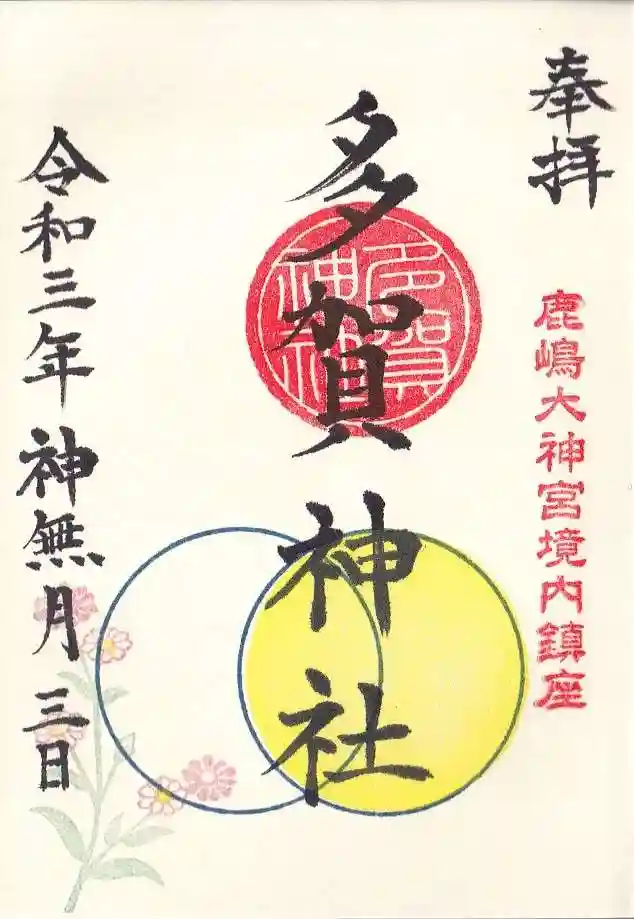 奉拝
鹿嶋大神宮境内鎮座
多賀神社
多賀
神社
令和三年神無月三日